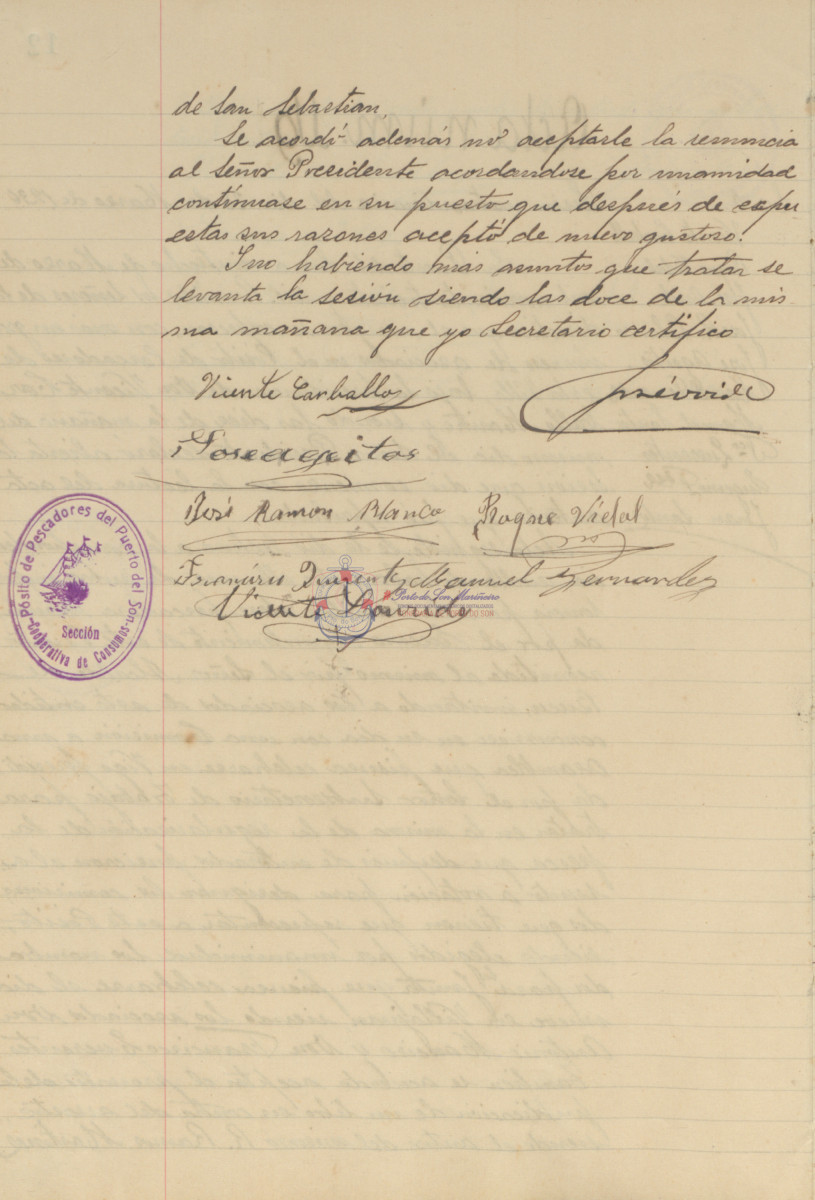 de San Sebastian.
Se acordó además no aceptarle la renuncia
al Señor Presidente acordandose por unamidad
contínuase en su puesto que después de expu
estas sus razones aceptó de nuevo gustoso.
I no habiendo más asuntos que tratar se
levanta la sesión siendo las doce de la mis
ma mañana que yo Secretario certifico
Vicente Carballo
José Ageitos
José Ramon Blanco Roque Vidal
Manuel Fernandez
Vicente
Pósito de Pescadores del Puerto del Son
Sección
Cooperativa de Consumos
Porto do Son Mariñeiro